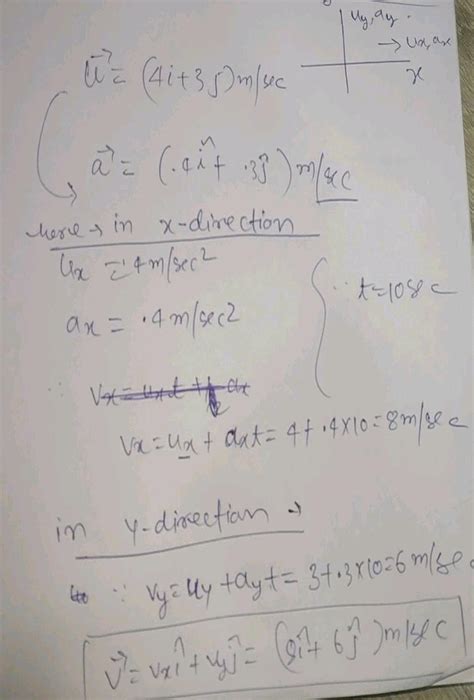 uy, ay.
→ ux, ax
x
u⃗ = (4i+3j) m/sec
a⃗ = (.4î + .3ĵ) m/sec
here → in x-direction
ux = 4 m/sec2
ax = .4 m/sec2
∵ t=10sec
∴ vx = uxt + 1/2 ax
vx = ux + axt = 4+.4×10 = 8m/sec
in y-direction →
∵ vy = uy + ayt = 3+.3×10 = 6 m/sec
v⃗ = vxî + vyĵ = (8î + 6ĵ) m/sec